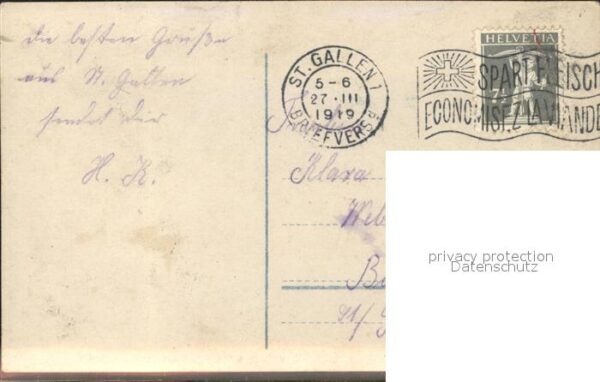 die besten Grüße
aus St. Gallen
sendet dir
H. K.
ST. GALLEN 1
5-6
27. III
1919
BRIEFVERS
HELVETIA
SPART FLEISCH
ECONOMISEZ LA VIANDE
Klara
privacy protection
Datenschutz